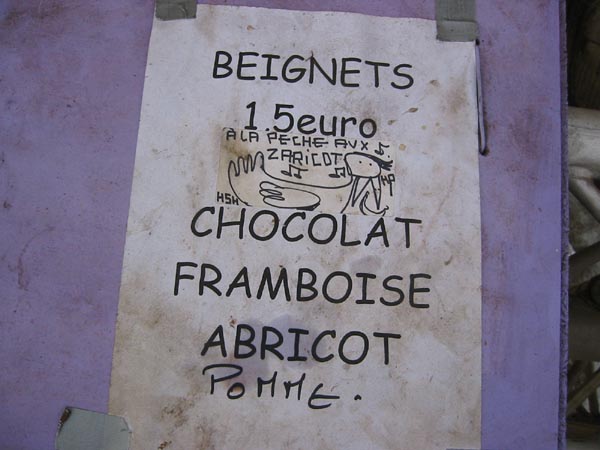 BEIGNETS
1.5euro
A LA PECHE AUX
ZARICOT
HSH
CHOCOLAT
FRAMBOISE
ABRICOT
POMME.